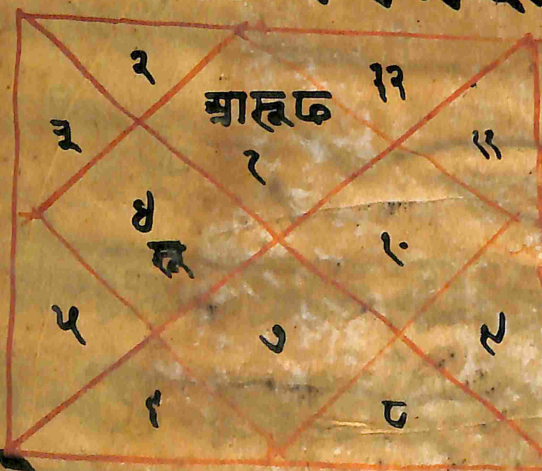 २
१२
आरूढ
३
११
१
४
१०
५
७
९
६
८